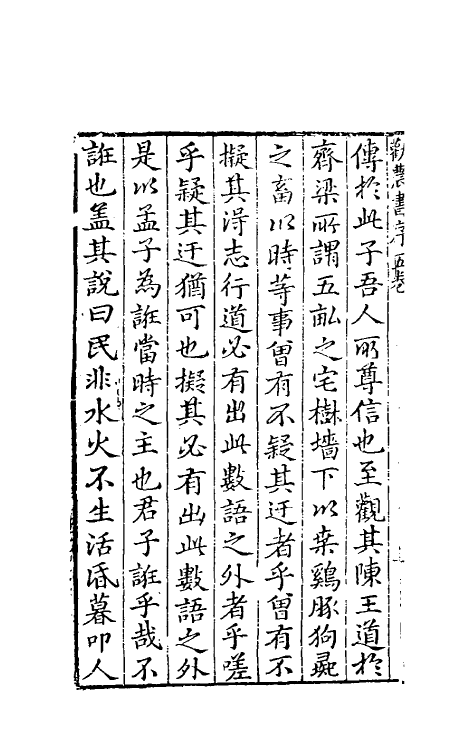 勸農書序
傳於此子吾人所尊信也至觀其陳王道於
齊梁所謂五畝之宅樹墻下以桒鷄豚狗彘
之畜以時等事曾有不疑其迂者乎曾有不
擬其淂志行道必有出此數語之外者乎嗟
乎疑其迂猶可也擬其必有出此數語之外
是以孟子為誑當時之主也君子誑乎哉不
誑也盖其說曰民非水火不生活昏暮叩人